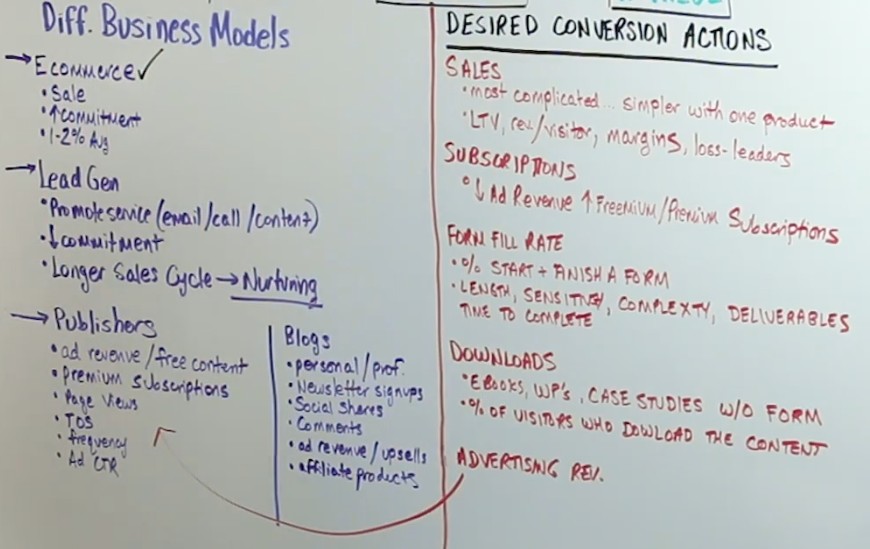 Diff. Business Models
→ Ecommerce ✓
• Sale
• ↑ commitment
• 1-2% Avg
→ Lead Gen
• Promote service (email/call/content)
• ↓ commitment
• Longer Sales Cycle → Nurturing
→ Publishers
• ad revenue/free content
• premium subscriptions
• Page Views
• TOS
• frequency
• Ad CTR
Blogs
• personal/prof.
• Newsletter signups
• Social Shares
• Comments
• ad revenue/upsells
• affiliate products
DESIRED CONVERSION ACTIONS
SALES
• most complicated... simpler with one product
• LTV, rev/visitor, margins, loss-leaders
SUBSCRIPTIONS
• ↓ Ad Revenue ↑ Freemium/Premium Subscriptions
FORM FILL RATE
• % START + FINISH A FORM
• LENGTH, SENSITIVITY, COMPLEXTY, DELIVERABLES
TIME TO COMPLETE
DOWNLOADS
• EBOOKS, WP's, CASE STUDIES W/O FORM
• % OF VISITORS WHO DOWLOAD THE CONTENT
ADVERTISING REV.